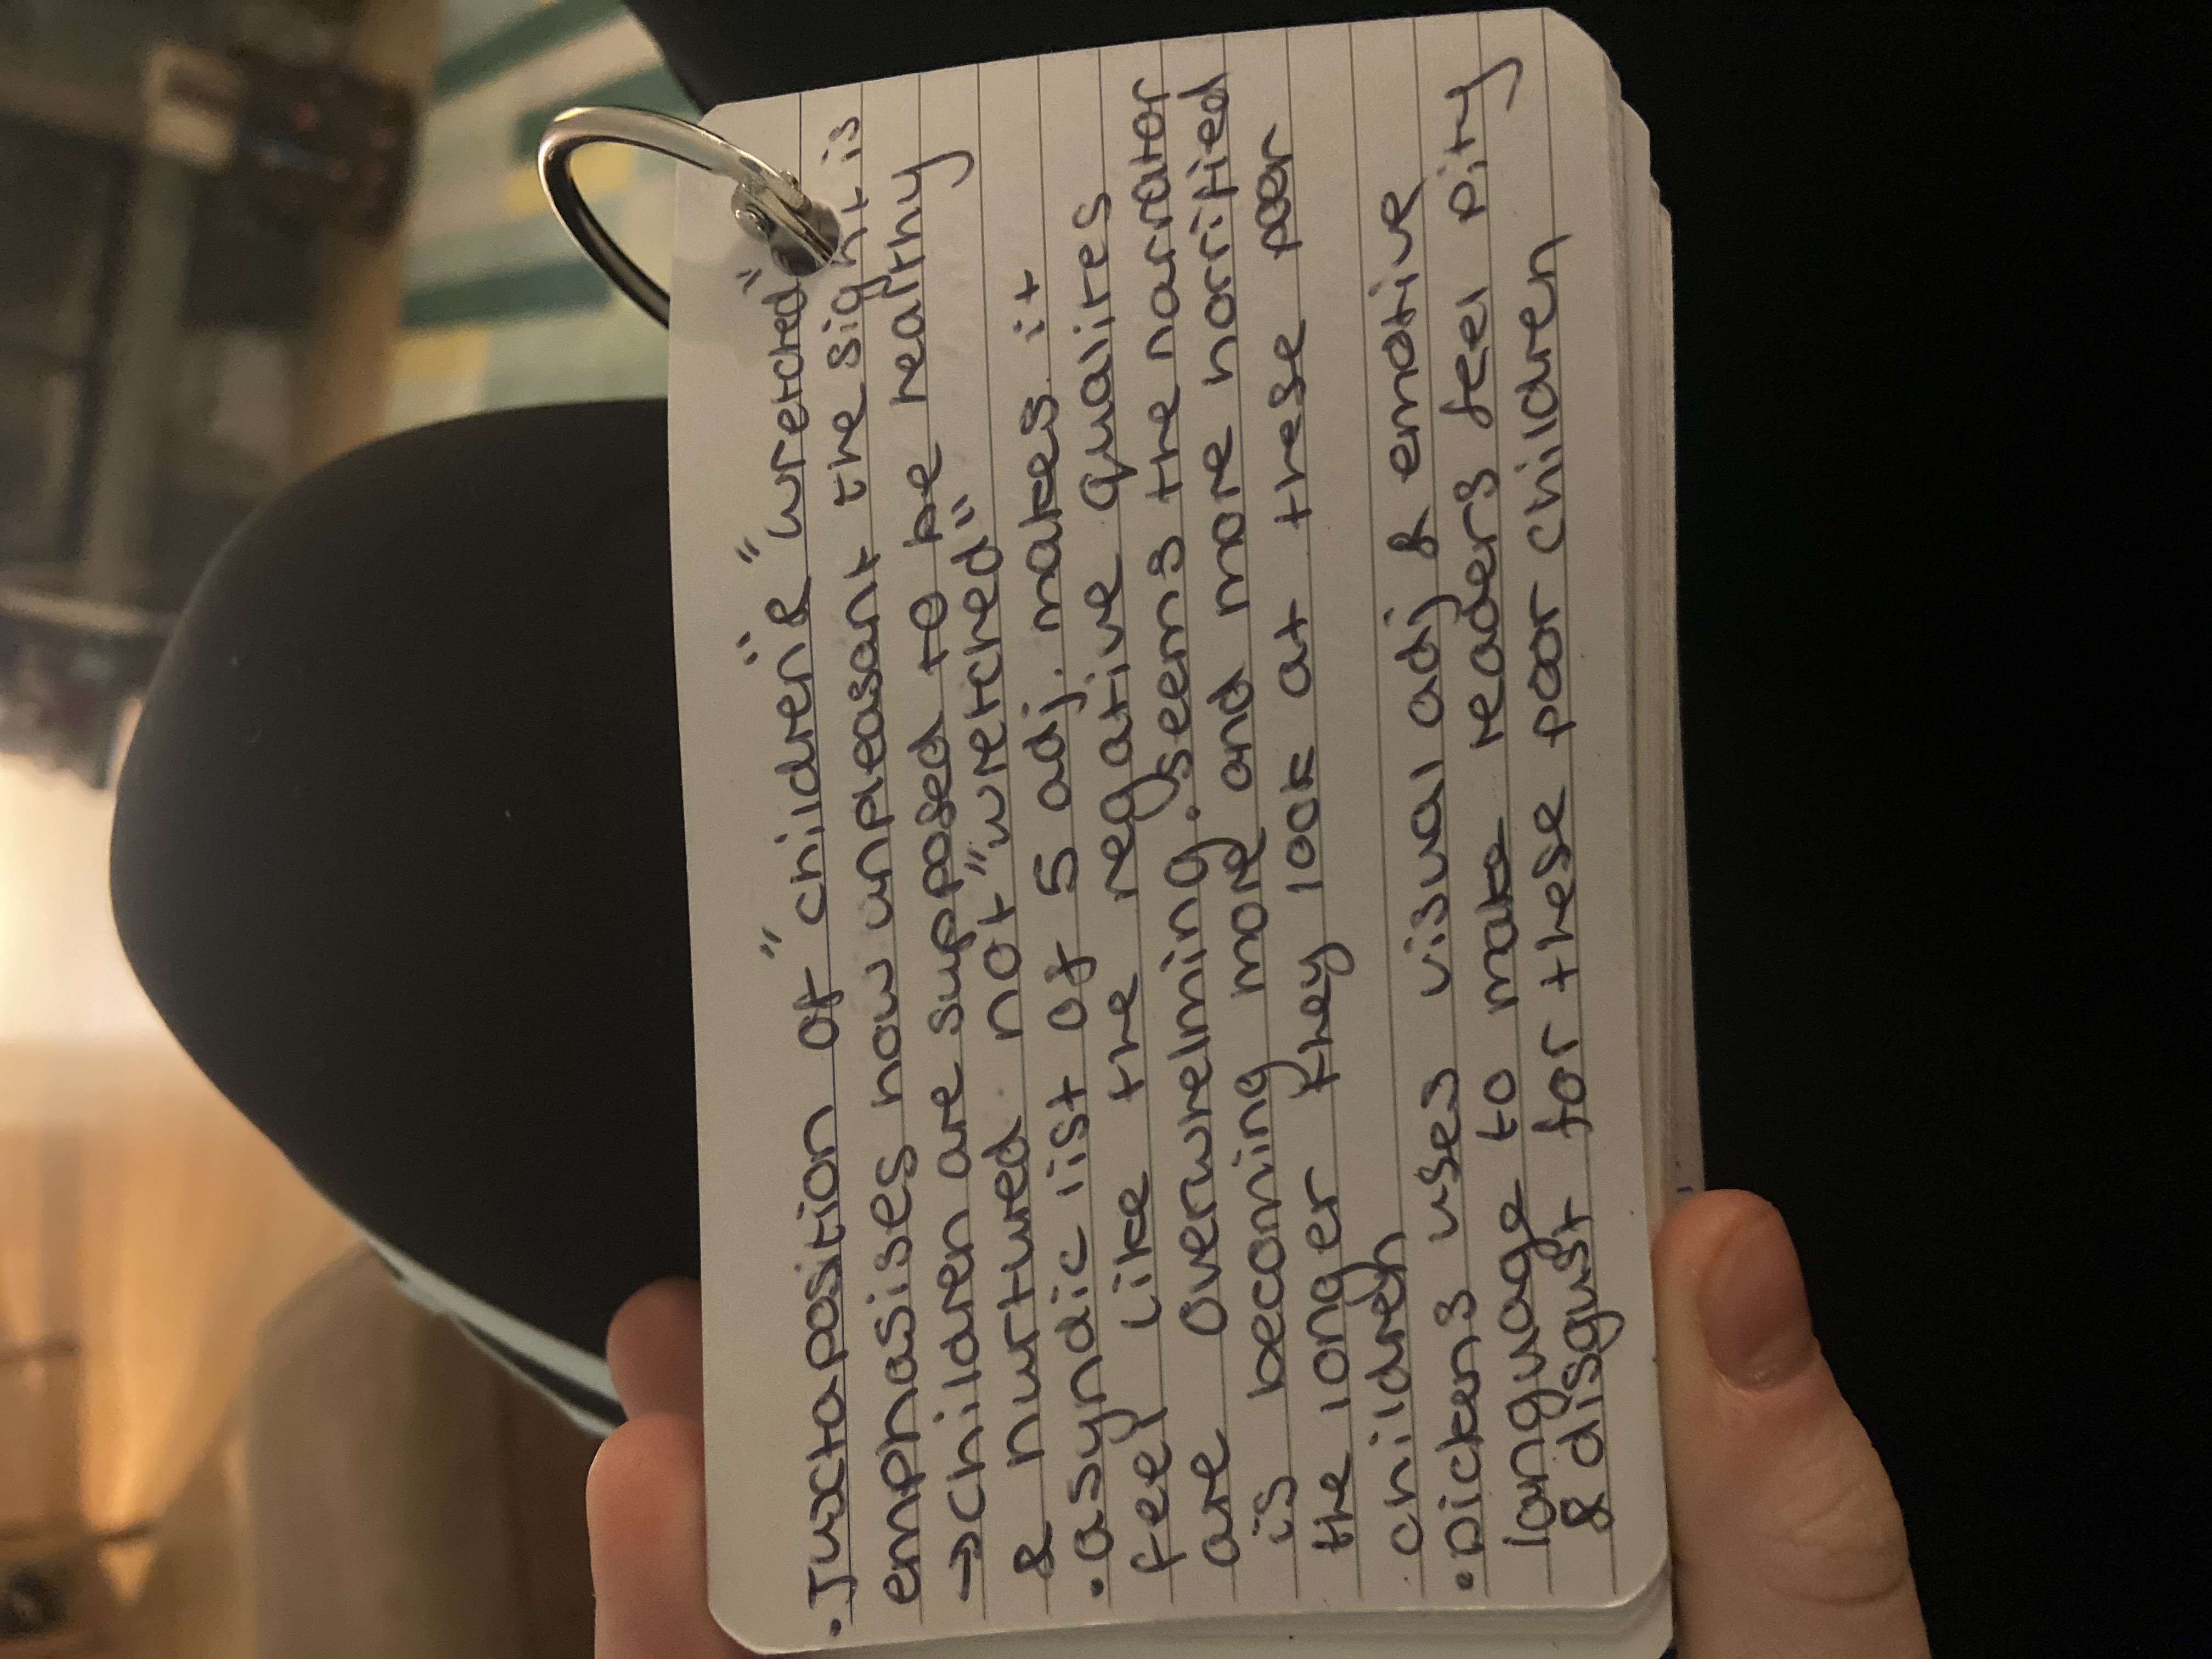 • Juxtaposition of "children" & "wretched"
emphasises how unpleasant the sight is
→ children are supposed to be healthy
& nurtured not "wretched"
• asyndic list of 5 adj. makes it
feel like the negative qualites
are overwhelming. seems the narrator
is becoming more and more horified
the longer they look at these poor
children
• Dickens uses visual adj & emotive
language to make readers feel pity
& disgust for these poor children